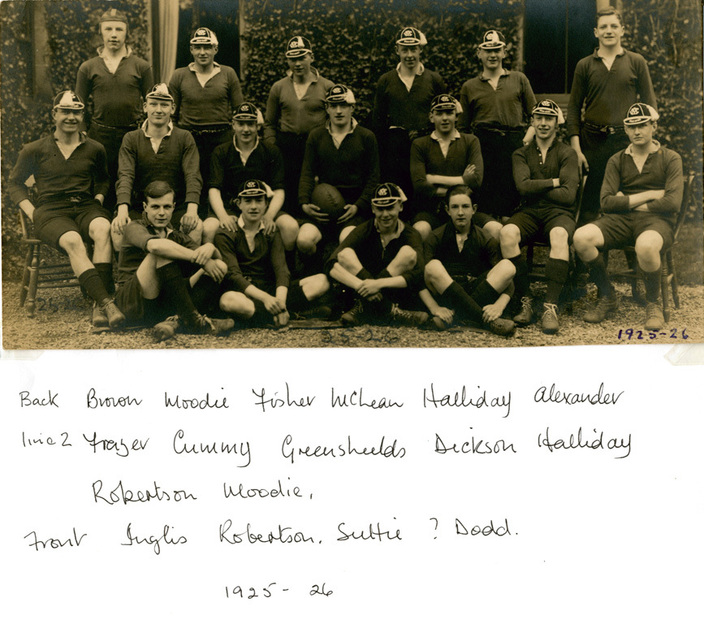 1925-26
Back Brown Moodie Fisher McLean Halliday Alexander
line 2 Frazer Cummy Greenshields Dickson Halliday
Robertson Moodie.
Front Inglis Robertson. Suttie ? Dodd.
1925- 26